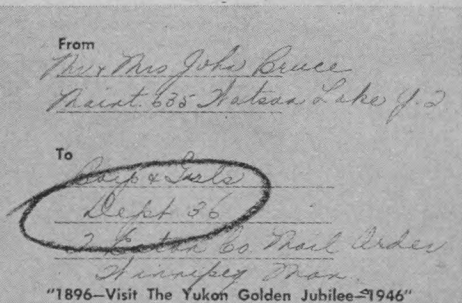 From
Mr & Mrs John Bruce
Maint. 635 Watson Lake Y.T.
To
& Girls
Dept 36
T. Eaton Co Mail Order
Winnipeg Man.
"1896—Visit The Yukon Golden Jubilee—1946"